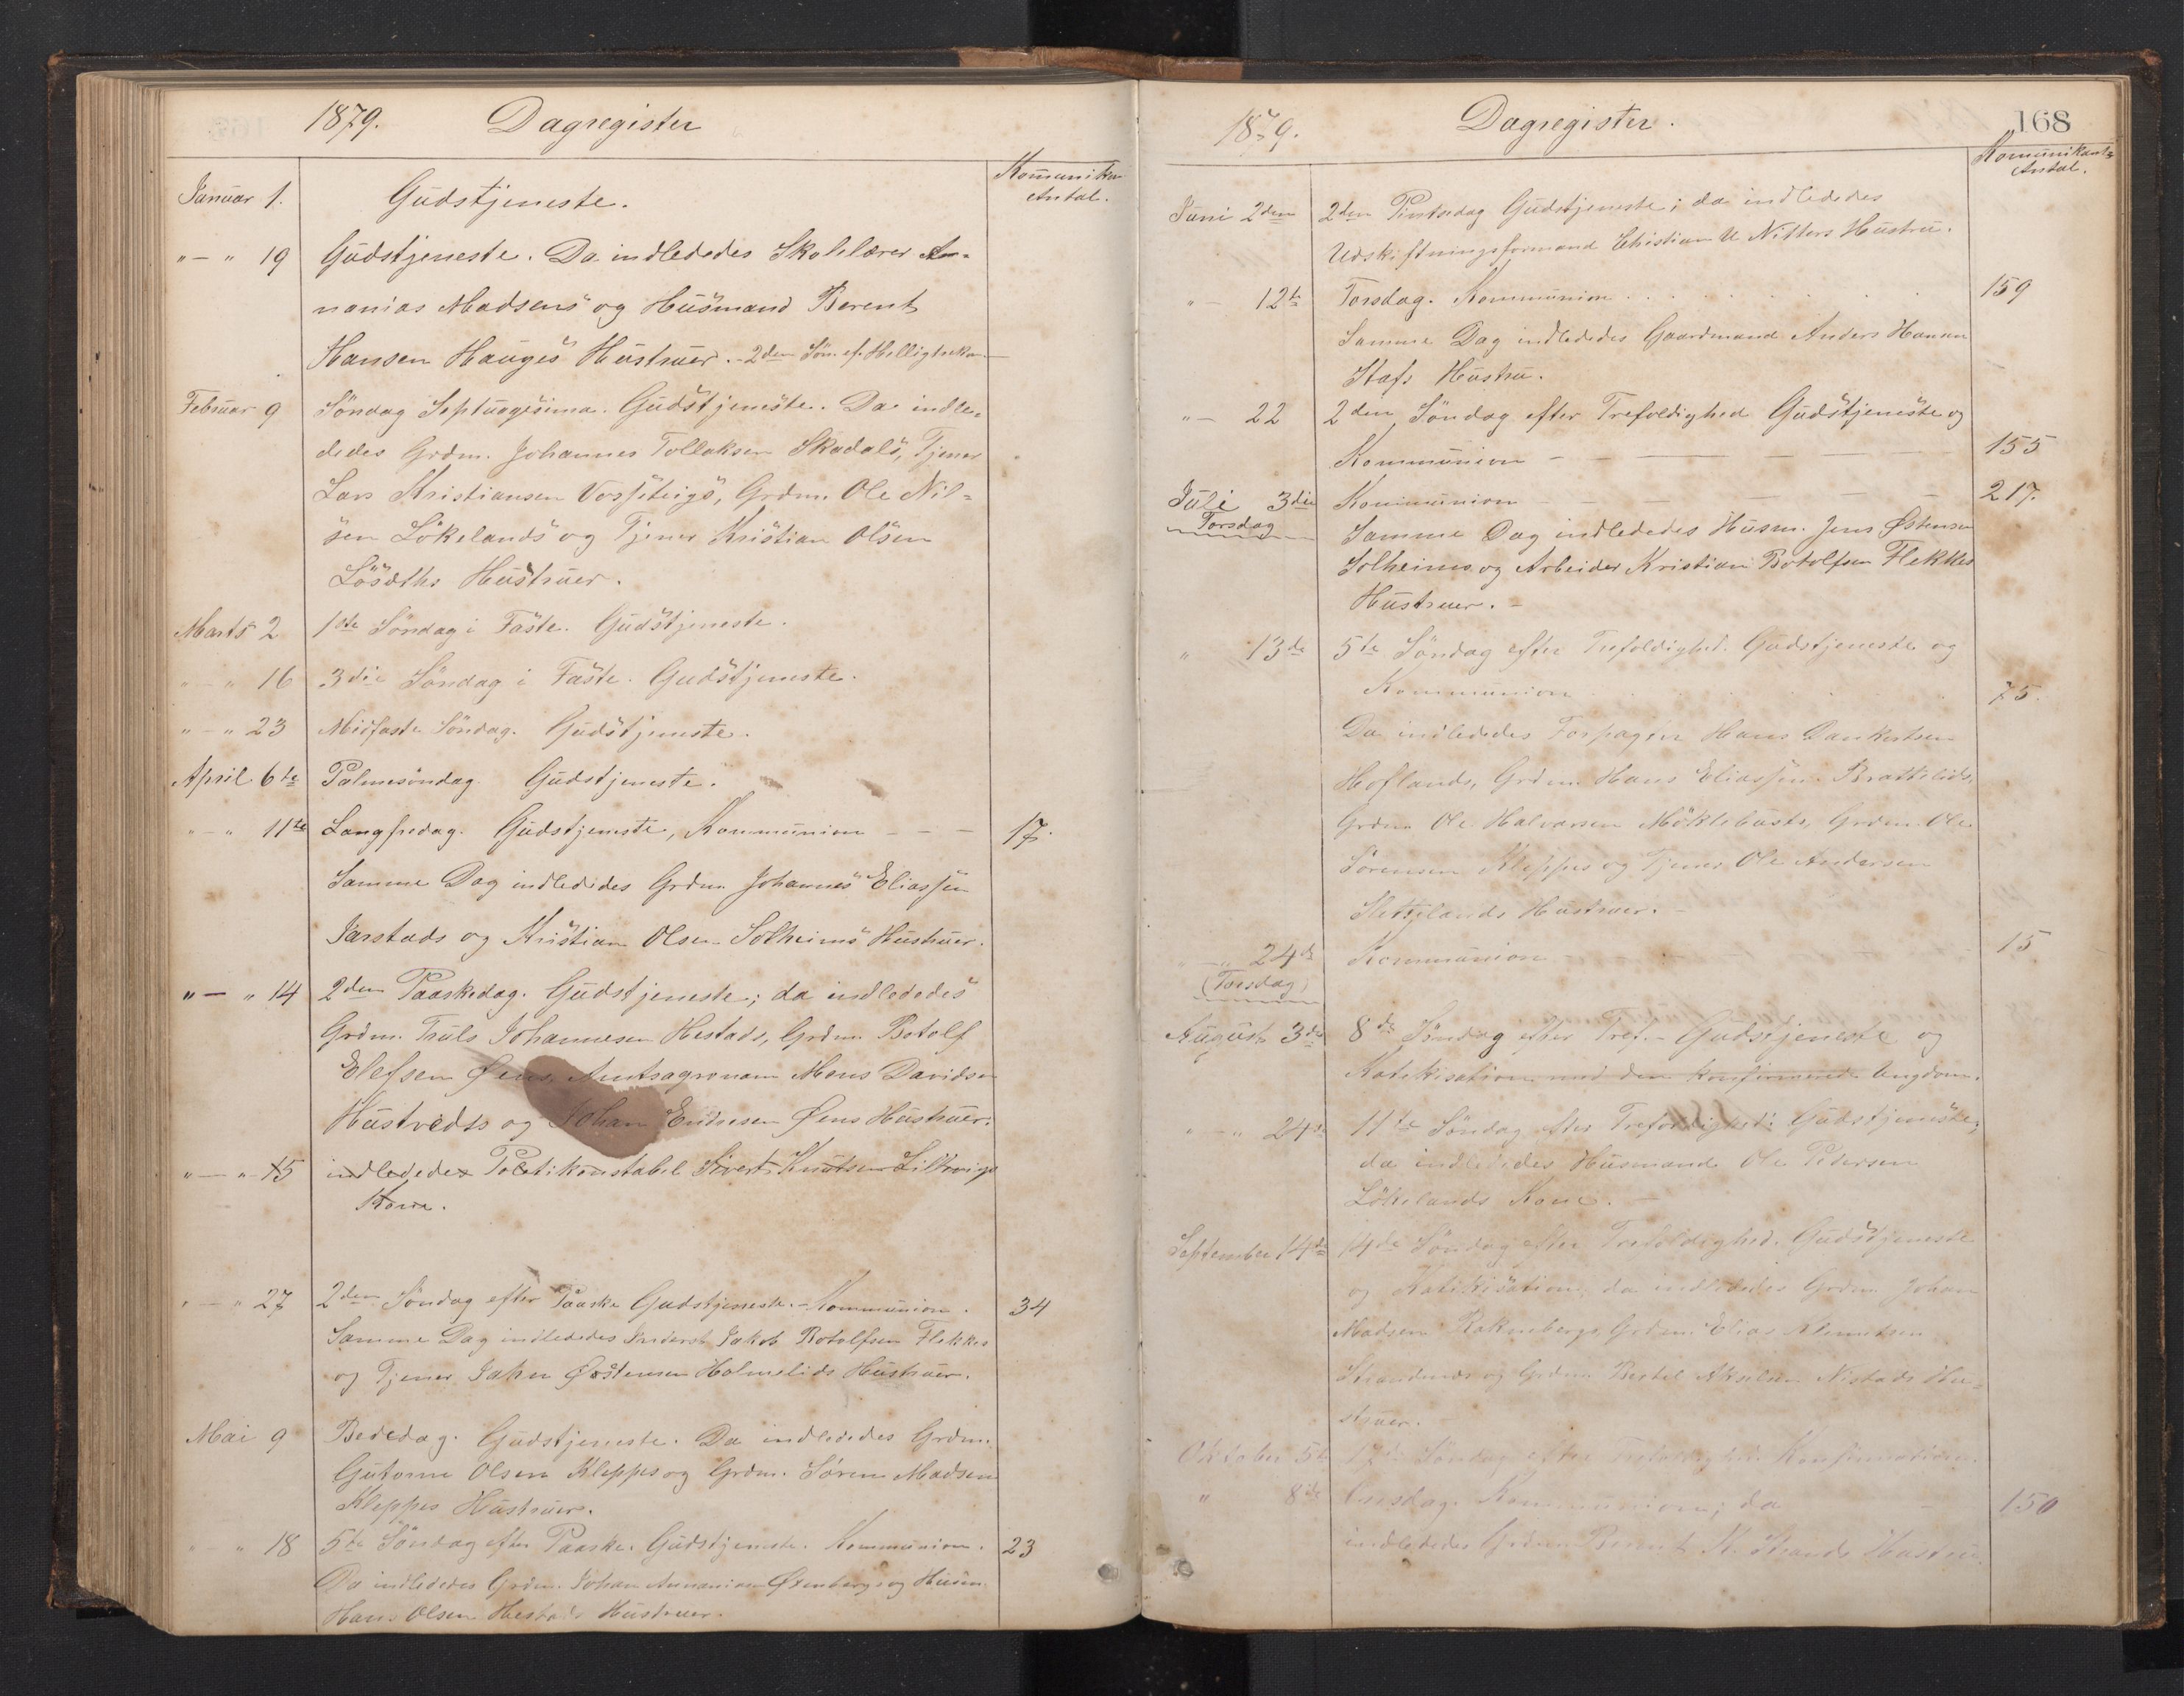 1879. Dagregister
Komunikan
Antal.
Januar 1. Gudstjeneste.
" — " 19 Gudstjeneste. Da indlededes Skolelærer An=
nanias Madsens og Husmand Berent
Hansen Hauges Hustruer. - 2den Søn. ef. Helligtrekon.
Februar 9 Söndag Septuagesima. Gudstjeneste. Da indle=
dedes Grdm. Johannes Tollaksen Skadals, Tjener
Lars Kristiansen Vorseteigs, Grdm. Ole Nil=
sen Lökelands og Tjener Kristian Olsen
Lösæths Hustruer.
Marts 2 1ste Söndag i Faste. Gudstjeneste.
" — " 16 3die Söndag i Faste. Gudstjeneste.
" — " 23 Midfaste Söndag. Gudstjeneste.
April 6te Palmesöndag. Gudstjeneste.
" — " 11te Langfredag. Gudstjeneste, Kommunion — — — 17.
Samme Dag indlededes Grdm. Johannes Eliassen
Jarstads og Kristian Olsen Solheims Hustruer.
" — " 14 2den Paaskedag. Gudstjeneste; da indlededes
Grdm. Truls Johannesen Hestads, Grdm. Botolf
Elefsen Øens, Amtsagronom Mons Davidsen
Hustvedts og Johan Endresen Øens Hustruer.
" — " 15 indlededes Politikonstabel Sivert Knutsen Lillevigs
Kone.
" — " 27 2den Söndag efter Paaske Gudstjeneste. - Kommunion. 34
Samme Dag indlededes Inderst Jakob Botolfsen Flekkes
og Tjener Jakob Østensen Holmelids Hustruer.
Mai 9 Bededag. Gudstjeneste. Da indlededes Grdm.
Gutorm Olsen Kleppes og Grdm. Sören Madsen
Kleppes Hustruer.
" — " 18 5te Söndag efter Paaske. Gudstjeneste. Kommunion. 23
Da indlededes Grdm. Johan Annaniasen Øxenbergs og Husm.
Hans Olsen Hestads Hustruer.
1879. Dagregister. 168
Komunikant=
Antal.
Juni 2den 2den Pintsedag Gudstjeneste; da indlededes
Udskiftningsformand Christian U Nitters Hustru.
" — 12te Torsdag. Kommunion . . . . 159
Samme Dag indlededes Gaardmand Anders Hansen
Stafs Hustru.
" — 22 2den Söndag efter Trefoldighed Gudstjeneste og
Kommunion — — — — — 155
Juli 3die Kommunion — — — — 217.
Torsdag Samme Dag indlededes Husm. Jens Østensen
Solheims og Arbeider Kristian Botolfsen Flekkes
Hustruer. -
" 13de 5te Söndag efter Trefoldighed. Gudstjeneste og
Kommunion . . . . 75.
Da indlededes Forpagter Hans Dankertsen
Hoflands, Grdm. Hans Eliassen Brattelids,
Grdm. Ole Halvorsen Möklebusts, Grdm. Ole
Sörensen Kleppes og Tjener Ole Andersen
Slettelands Hustruer. -
" — " 24de Kommunion — — — — 15
(Torsdag)
August 3die 8de Söndag efter Tref. - Gudstjeneste og
Katekisation med den konfirmerede Ungdom.
" — " 24de 11te Söndag efter Trefoldighed: Gudstjeneste;
da indlededes Husmand Ole Pedersen
Lökelands Kone. -
September 14de 14de Söndag efter Trefoldighed. Gudstjeneste
og Katekisation, da indlededes Grdm. Johan
Madsen Grdm. Elias Klemetsen
Strandenæs og Grdm. Bertel Akselsen Nistads Hu=
struer.
Oktober 5te 17de Söndag efter Trefoldighed. Konfirmation.
" 8de Onsdag. Kommunion; da — 150
indlededes Grdm. Berent K. Strands Hustru.